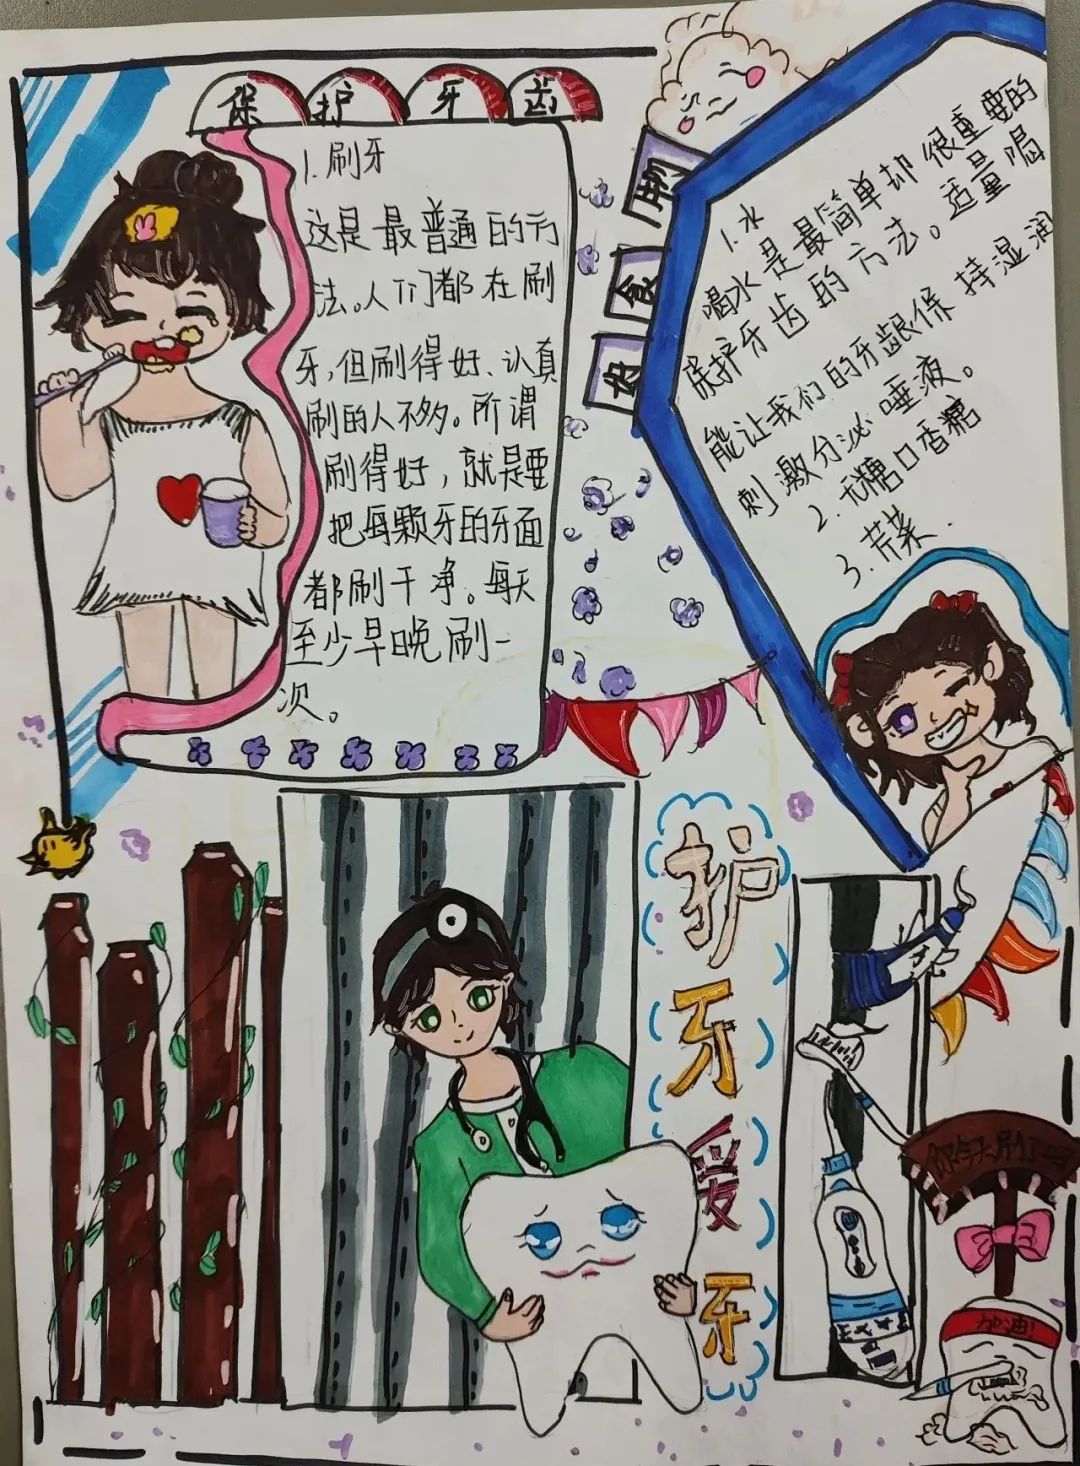 保护牙齿
1.刷牙
这是最普通的方
法。人们都在刷
牙,但刷得好、认真
刷的人不多。所谓
刷得好,就是要
把每颗牙的牙面
都刷干净。每天
至少早晚刷一
次。
食
1.水
喝水是最简单却很重要的
保护牙齿的方法。适量喝
能让我们的牙龈保持湿润
刺激分泌唾液。
2.无糖口香糖
3.芹菜.
护牙爱牙
加油!